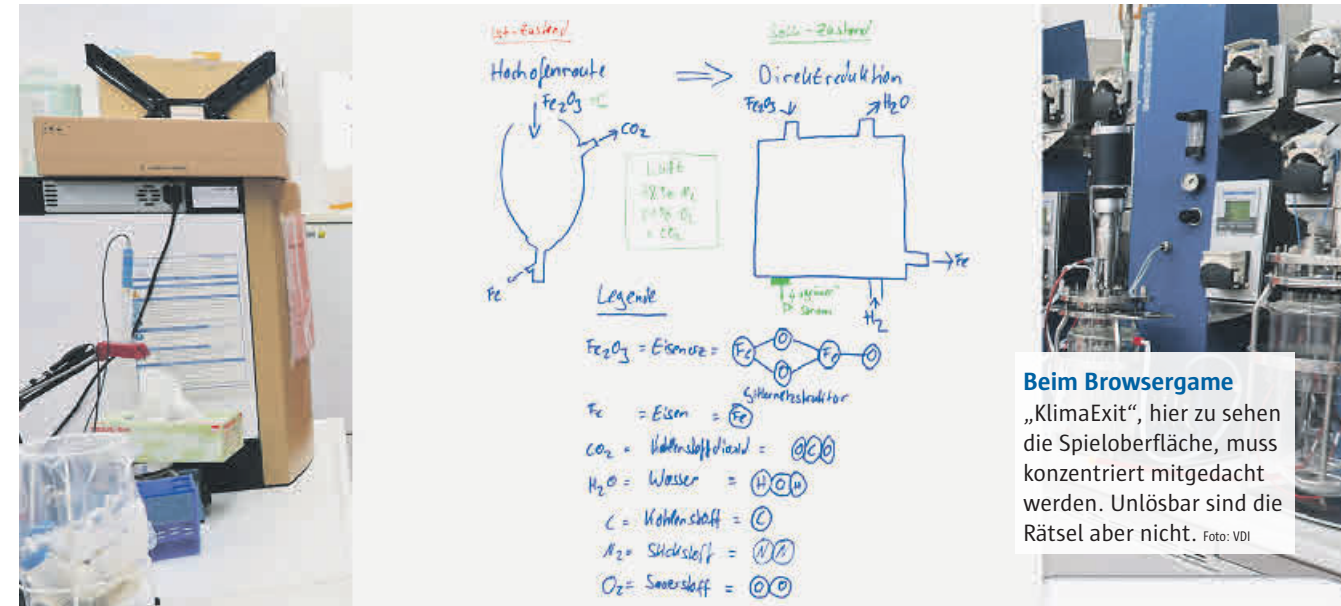 Ist-Zustand
Soll-Zustand
Hochofenroute ⇒ Direktreduktion
Fe₂O₃ + C
CO₂
Fe₂O₃
H₂O
Luft
78% N₂
21% O₂
CO₂
Fe
Fe
"grüner"
Strom
H₂
Legende
Fe₂O₃ = Eisenerz = Fe O O Fe O
Gitternetzstruktur
Fe = Eisen = Fe
CO₂ = Kohlenstoffdioxid = O C O
H₂O = Wasser = H O H
C = Kohlenstoff = C
N₂ = Stickstoff = N N
O₂ = Sauerstoff = O O
Beim Browsergame
„KlimaExit“, hier zu sehen
die Spieloberfläche, muss
konzentriert mitgedacht
werden. Unlösbar sind die
Rätsel aber nicht. Foto: VDI